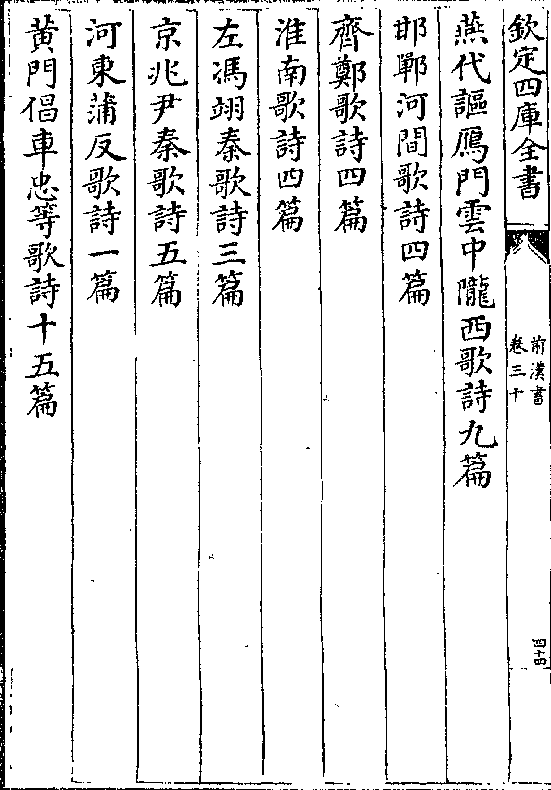 欽定四庫全書
前漢書
卷三十
四十四
燕代謳鴈門雲中隴西歌詩九篇
邯鄲河間歌詩四篇
齊鄭歌詩四篇
淮南歌詩四篇
左馮翊秦歌詩三篇
京兆尹秦歌詩五篇
河東蒲反歌詩一篇
黃門倡車忠等歌詩十五篇